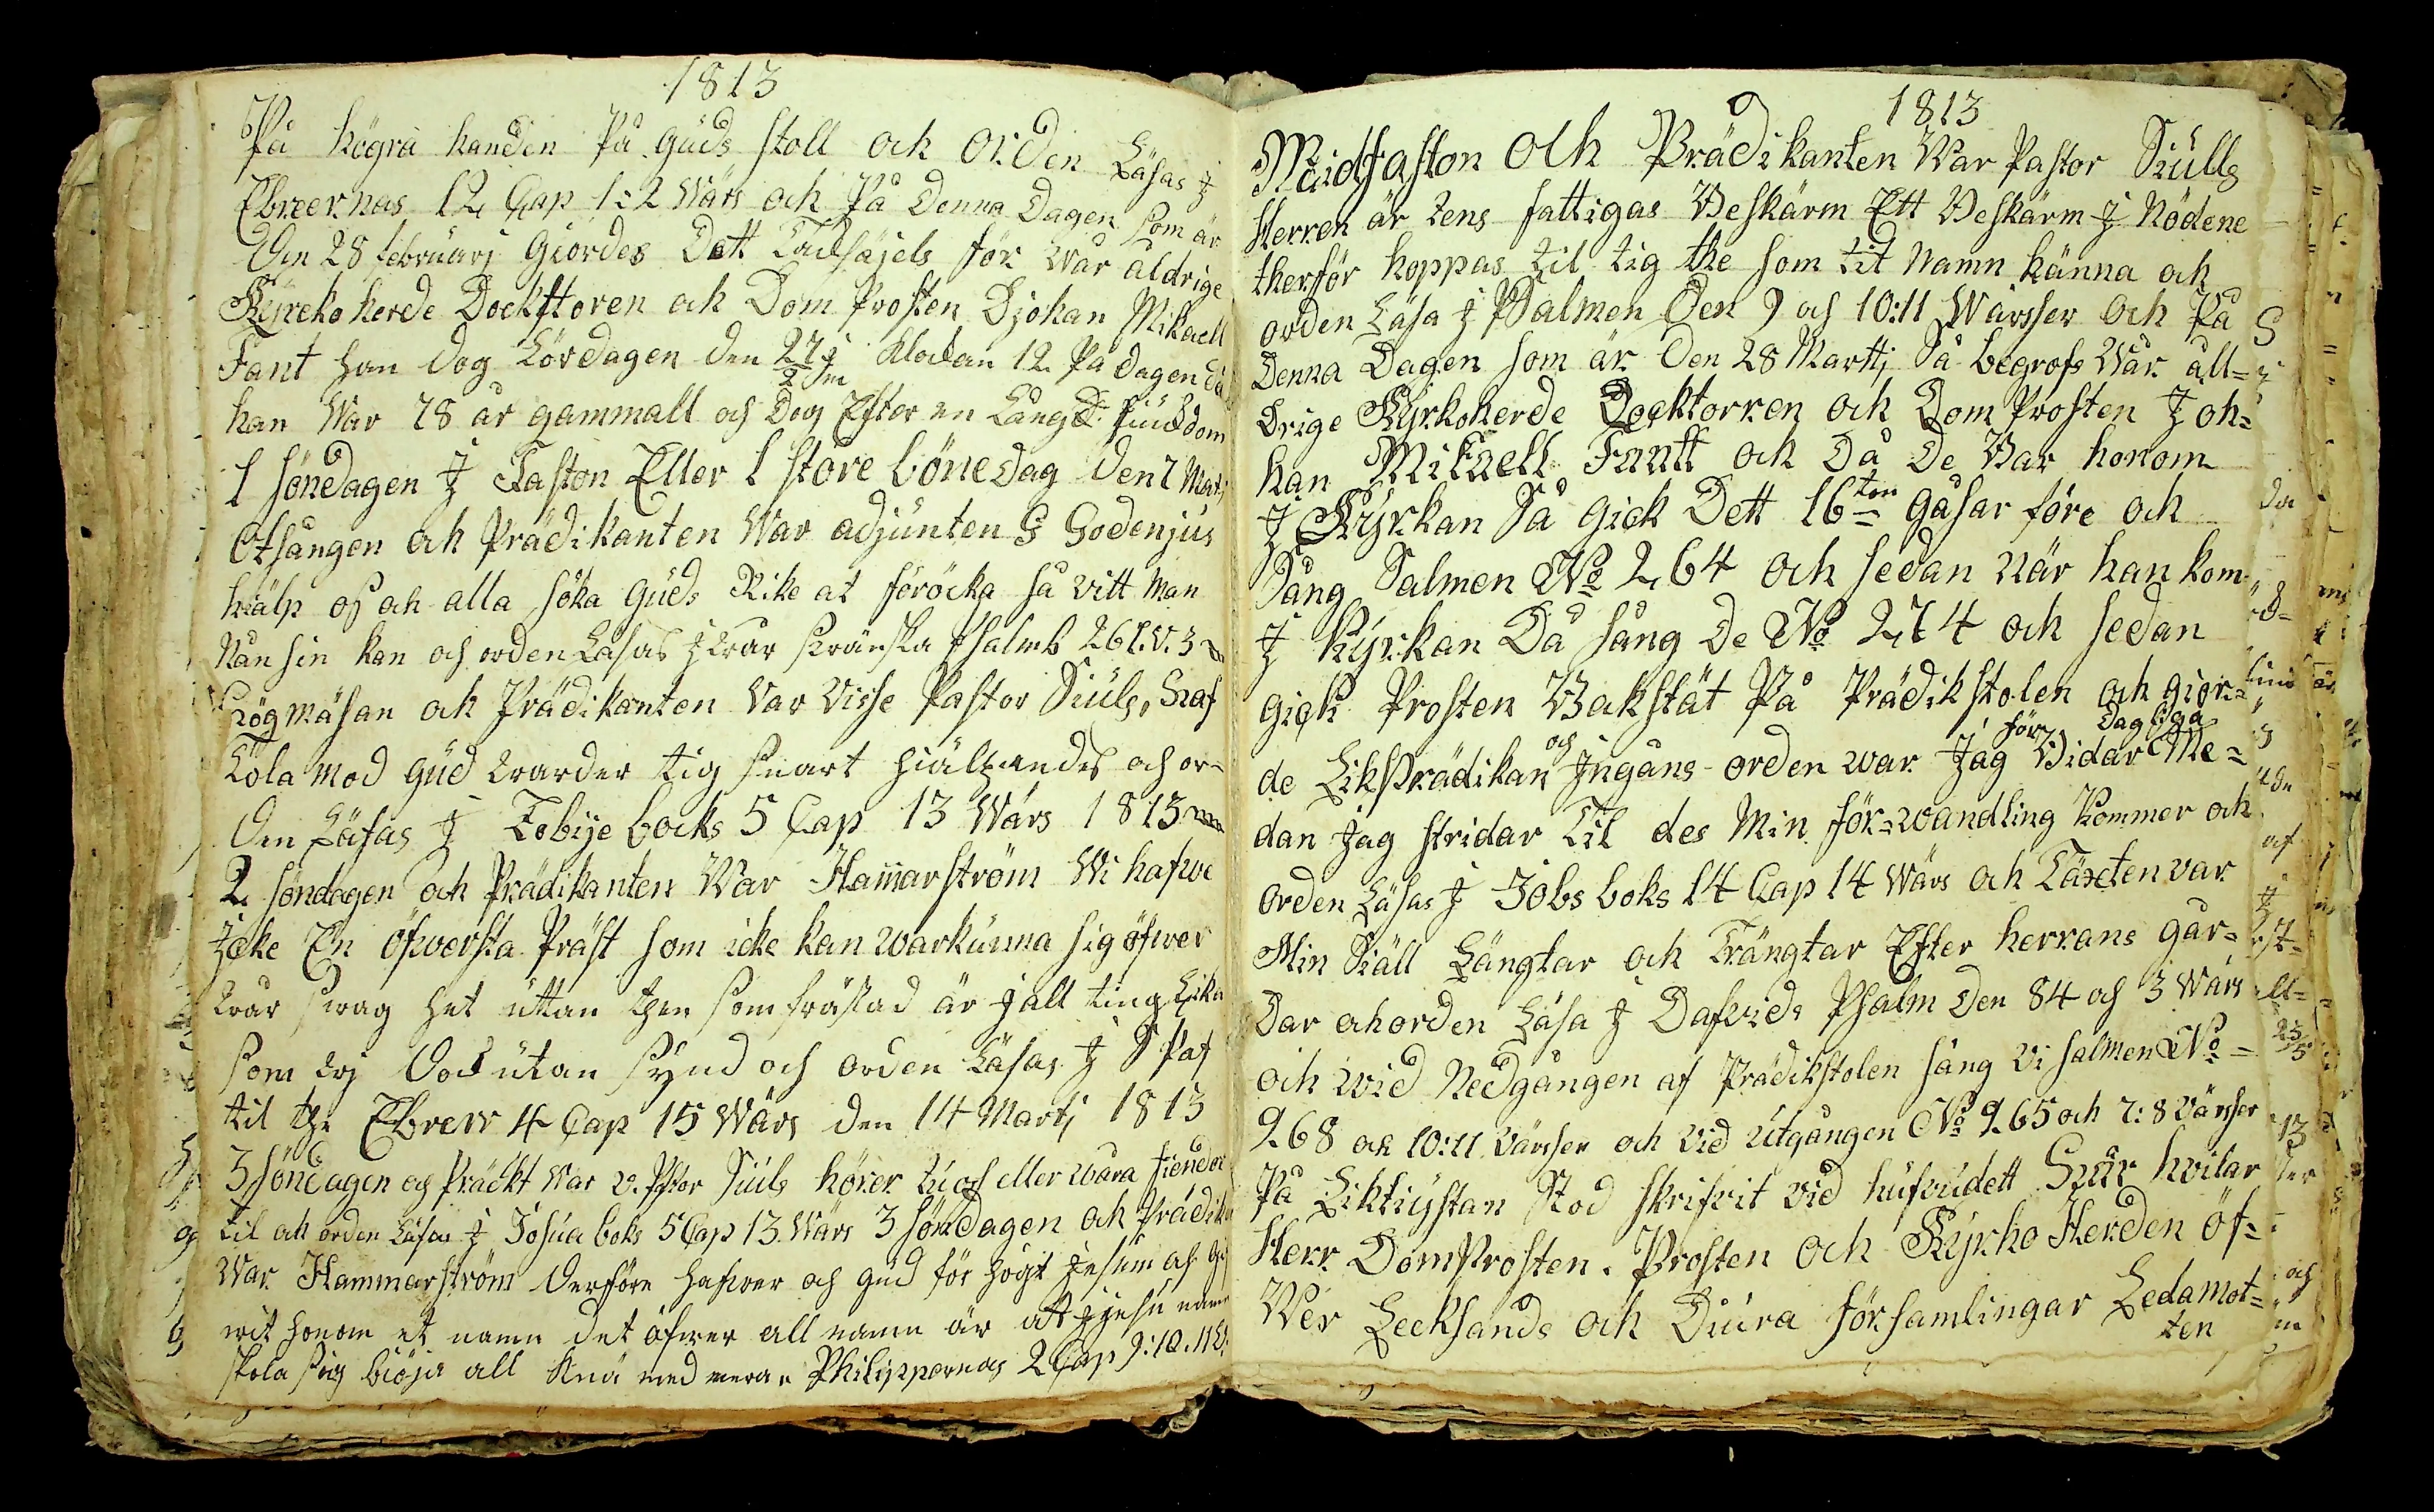 1813
På högra handen På Guds stoll och orden Läsas J
Ebreernas 12 Cap 1:2 Wärs och På Denna Dagen som är
Den 28 februarj Giordes Dett Tacksäjels för wår åldrige
Kÿrcko herde Dockttoren och Dom Prosten Djohan Mikaell
Fant han dog Lördagen den 27 j Klockan 12 På dagen då
han War 78 år gammall och Dog Efter en Lång Siukdom
1 söndagen J Faston Eller 1 store bönedag den 7 Martj
Otsången och Prädikanten War adjunten G Godenjus
hiälp oss och alla söka Guds Rike at föröcka så vitt Man
Nånsin kan och orden Läsas J wår swänska psalmb 261. v. 3
Högmäsan och Prädikanten Var Visse Pastor Siuls, Haf
Tola mod Gud warder tig snart hiälpandes och or-
den Läsas J Tobije bocks 5 Cap 13 Wärs 1813
2 söndagen och Prädikanten War Hammarström Wi hafwe
Jcke En öfwersta Präst som icke kan warkunna sig öfwer
wår swaghet uttan then som frästad är J all ting Lika
som wj Dock utan sÿnd och orden Läsas J S Paf
til the Ebreer 4 Cap 15 Wärs den 14 Martj 1813
3 söndagen och Präckt War v. Pastor Siuls hörer tu oss eller wåra fiender
til och orden Läsas J Josua boks 5 Cap 13 Wärs 3 söndagen och Prädik
War Hammarström Derföre hafwer och gud för högt Jesum och gif
wit honom et namn det öfwer all namn är att J Jesu namn
skola sig böja all knä med mera Philippernas 2 Cap 9:10.11
1813
Midfaston Och Prädikanten War Pastor Siulls
Herren är tens fattigas Beskärm Ett Beskärm J Nödene
therför hoppas til tig the som tit Namn känna och
orden Läsa J Psalmen Den 9 och 10:11 Wärsser och På
Denna Dagen som är Den 28 Marttj Så begrofs Wår åll=
Drige Kÿrkoherde Docktorren och Dom Prosten Joh=
han Mikaell Fantt och Då De Bar honom
J Kÿrkan Så Gick Dett 16ton Gåsar före och
Sång Salmen No 264 och sedan när han kom
J Kÿrkan Då sång De No 274 och sedan
gick Prosten Bakstät På Prädikstolen och gior=
de Likprädikan och Jngåns-orden war Jag för Bidar dagliga Me=
dan Jag stridar Til des Min för=wandling kommer och
orden Läsas J Jobs boks 14 Cap 14 Wärs och Täxten var
Min Siäll Längtar och Trängtar Efter herrans går=
Dar och orden Läsa J Dafvids Psalm Den 84 och 3 Wärs
och wid Nedgången af Prädikstolen sång Vi salmen No=
268 och 10:11 Värsser och Vid Utgången No 265 och 7:8 Värsser
På Liktiÿstan Stod skrifvit vid hufvudett Här hvilar
Herr DomProsten. Prosten och Kÿrko Herden öf=
Wer Lecksands och Diura församlingar Ledamot=
ten